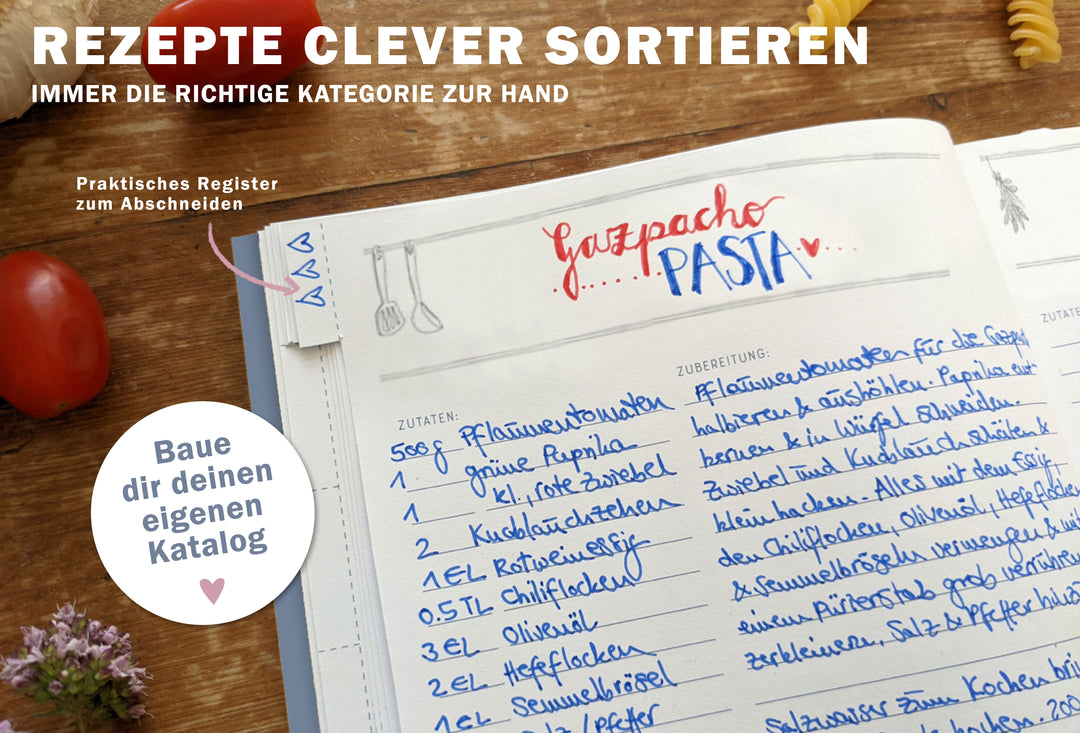 REZEPTE CLEVER SORTIEREN
IMMER DIE RICHTIGE KATEGORIE ZUR HAND
Praktisches Register
zum Abschneiden
Gazpacho
PASTA
Baue
dir deinen
eigenen
Katalog
ZUTATEN:
500g Pflaumentomaten
1 grüne Paprika
1 kl., rote Zwiebel
2 Knoblauchzehen
1 EL Rotweinessig
0.5 TL Chiliflocken
3 EL Olivenöl
2 EL Hefeflocken
1 EL Semmelbrösel
Salz / Pfeffer
ZUBEREITUNG:
Pflaumentomaten für die
halbieren & aushöhlen. Paprika ent
kernen & in Würfel schneiden.
Zwiebel und Knoblauch schälen &
klein hacken. Alles mit dem Essig,
den Chiliflocken, Olivenöl, Hefeflocken
& Semmelbröseln vermengen & mit
einem Pürierstab grob verrühren
zerkleinern, Salz & Pfeffer
Salzwasser zum Kochen
kochen. 200